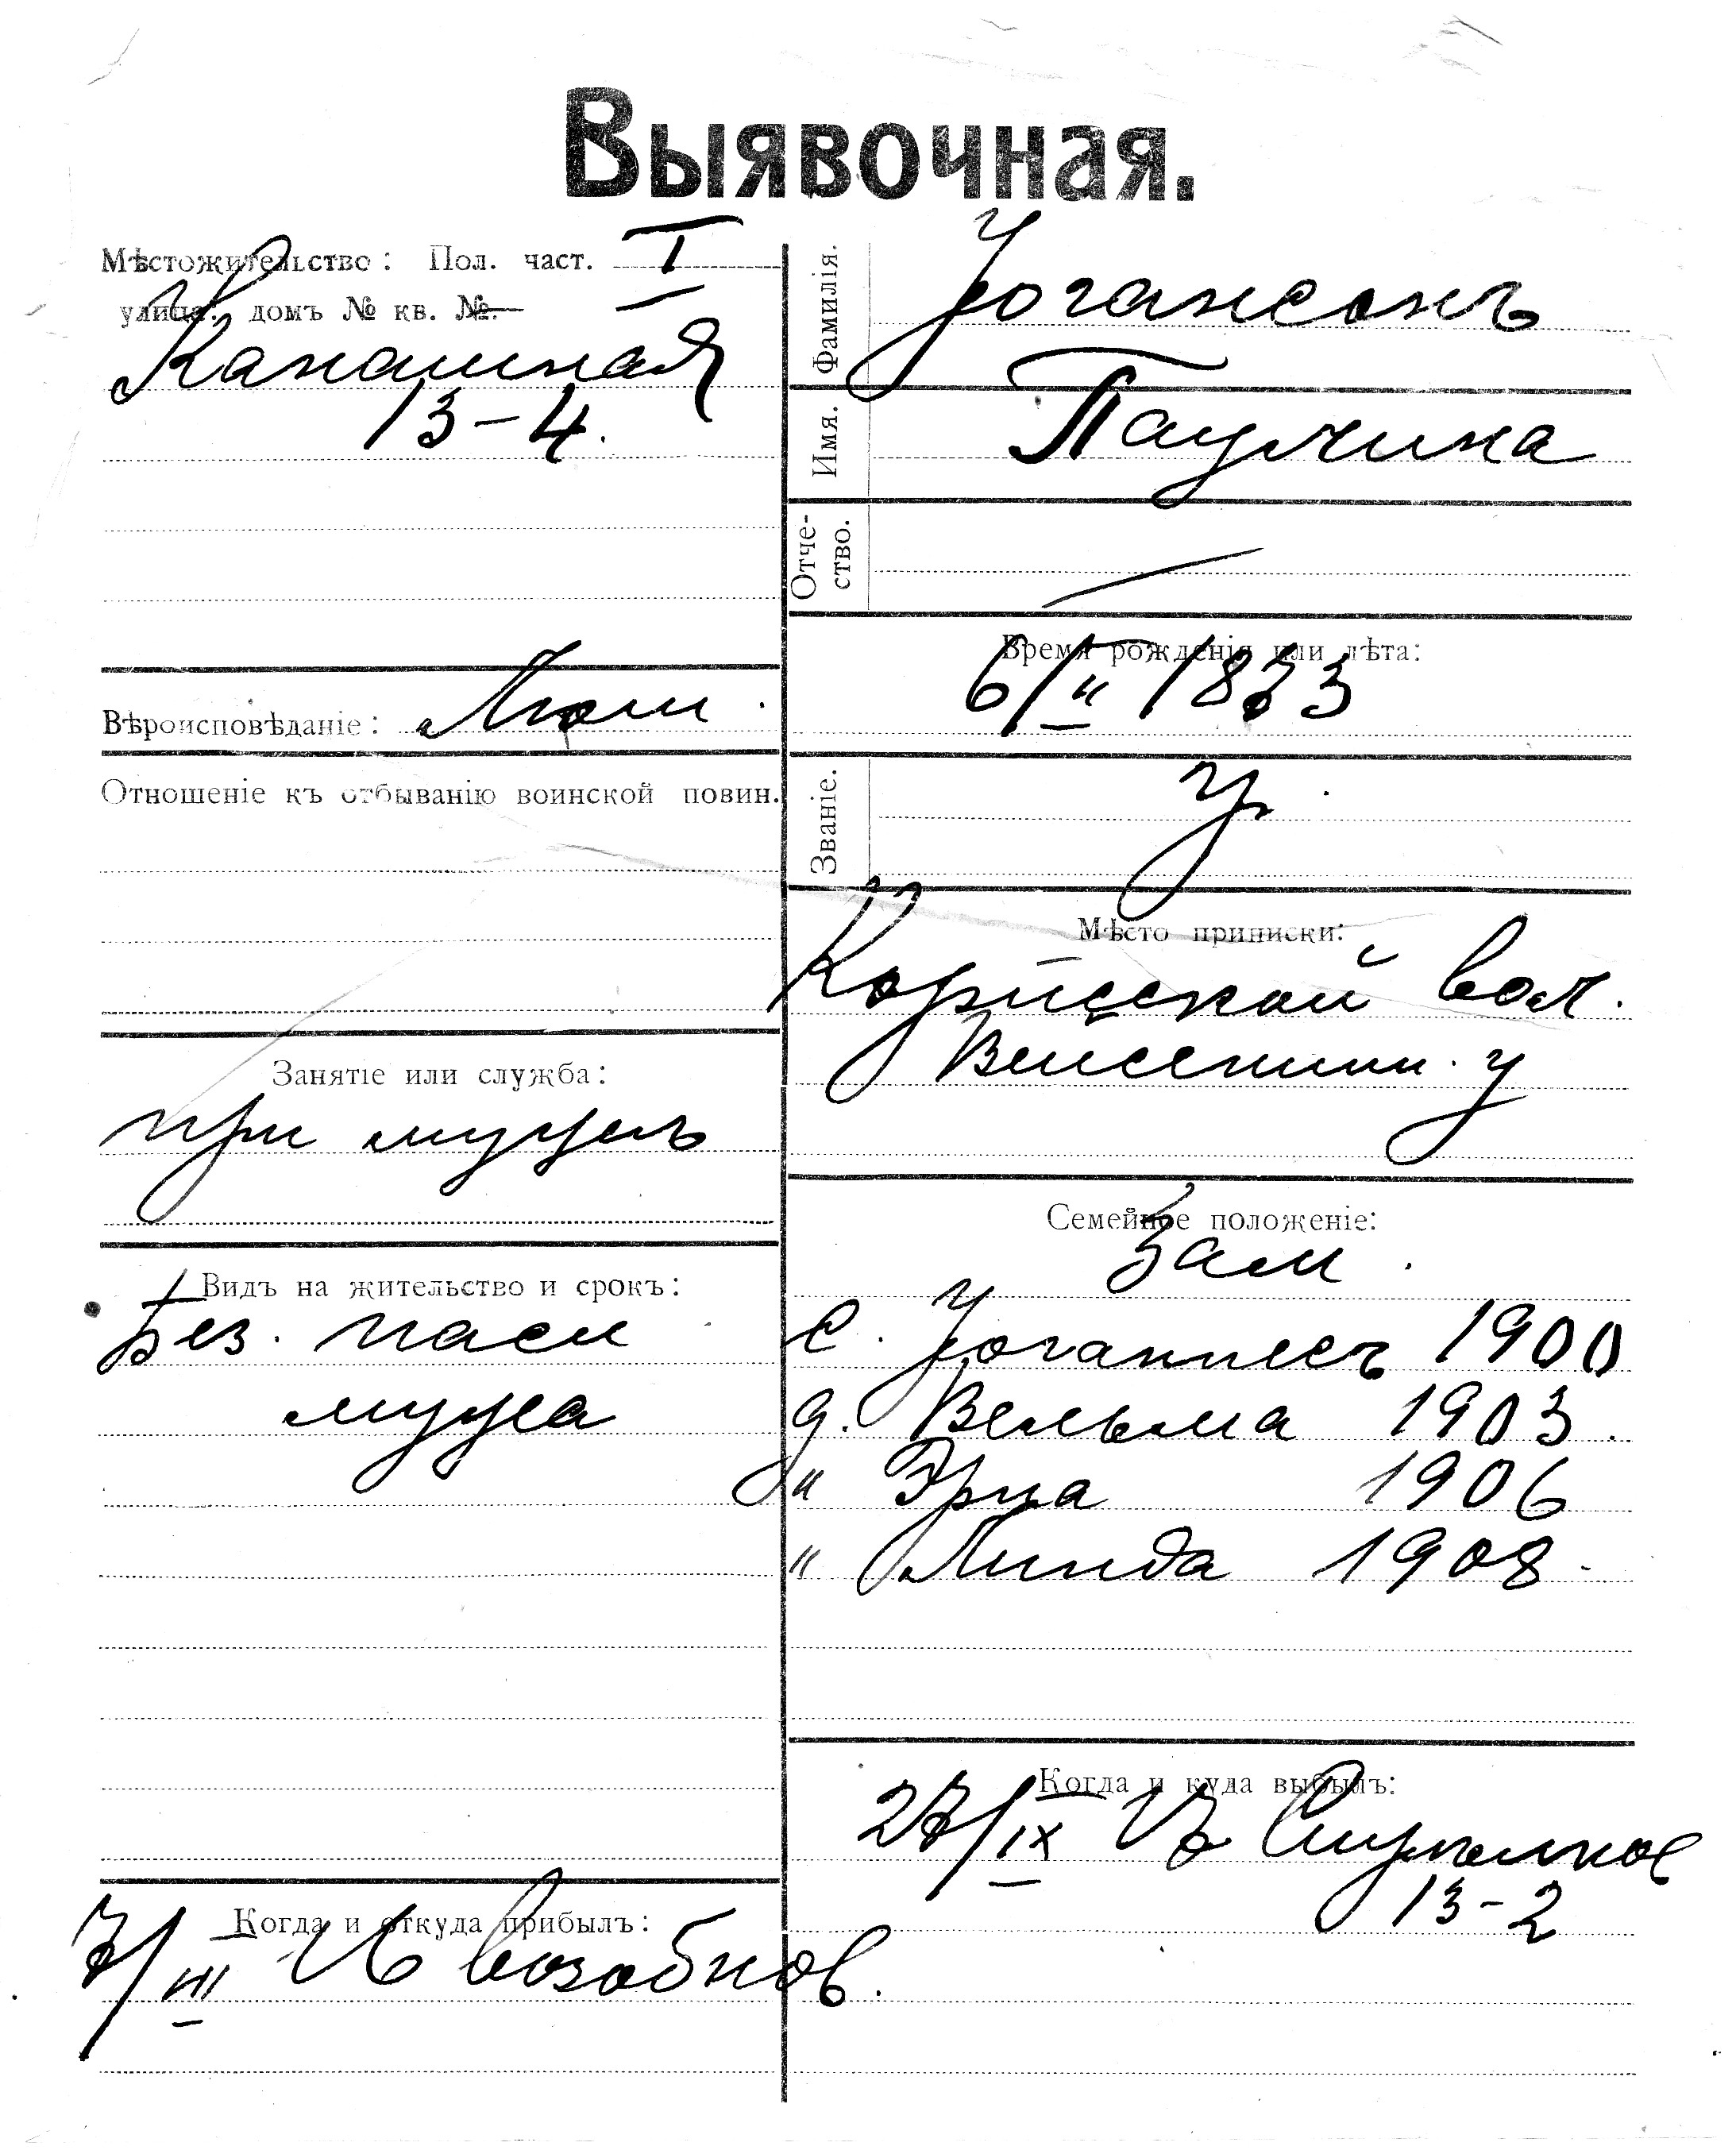 Выявочная.
Мѣстожительство: Пол. част. I
улица: домъ № кв. №.
Канатная
13-4.
Вѣроисповѣданіе: Лют.
Отношеніе къ отбыванію воинской повин.
Занятіе или служба:
при мужѣ
Видъ на жительство и срокъ:
Без. пасп
мужа
Когда и откуда прибылъ:
7/III возобнов.
Фамилія. Іогансонъ
Имя. Паулина
Отче-
ство. —
Время рожденія или лѣта:
6/II 1873
Званіе. кр.
Мѣсто приписки:
вол.
Везенш. у
Семейное положеніе:
Зам.
с. Іоганнесъ 1900
д. Вельма 1903.
" Эрна 1906
" Линда 1908.
Когда и куда выбылъ:
27/IX
13-2